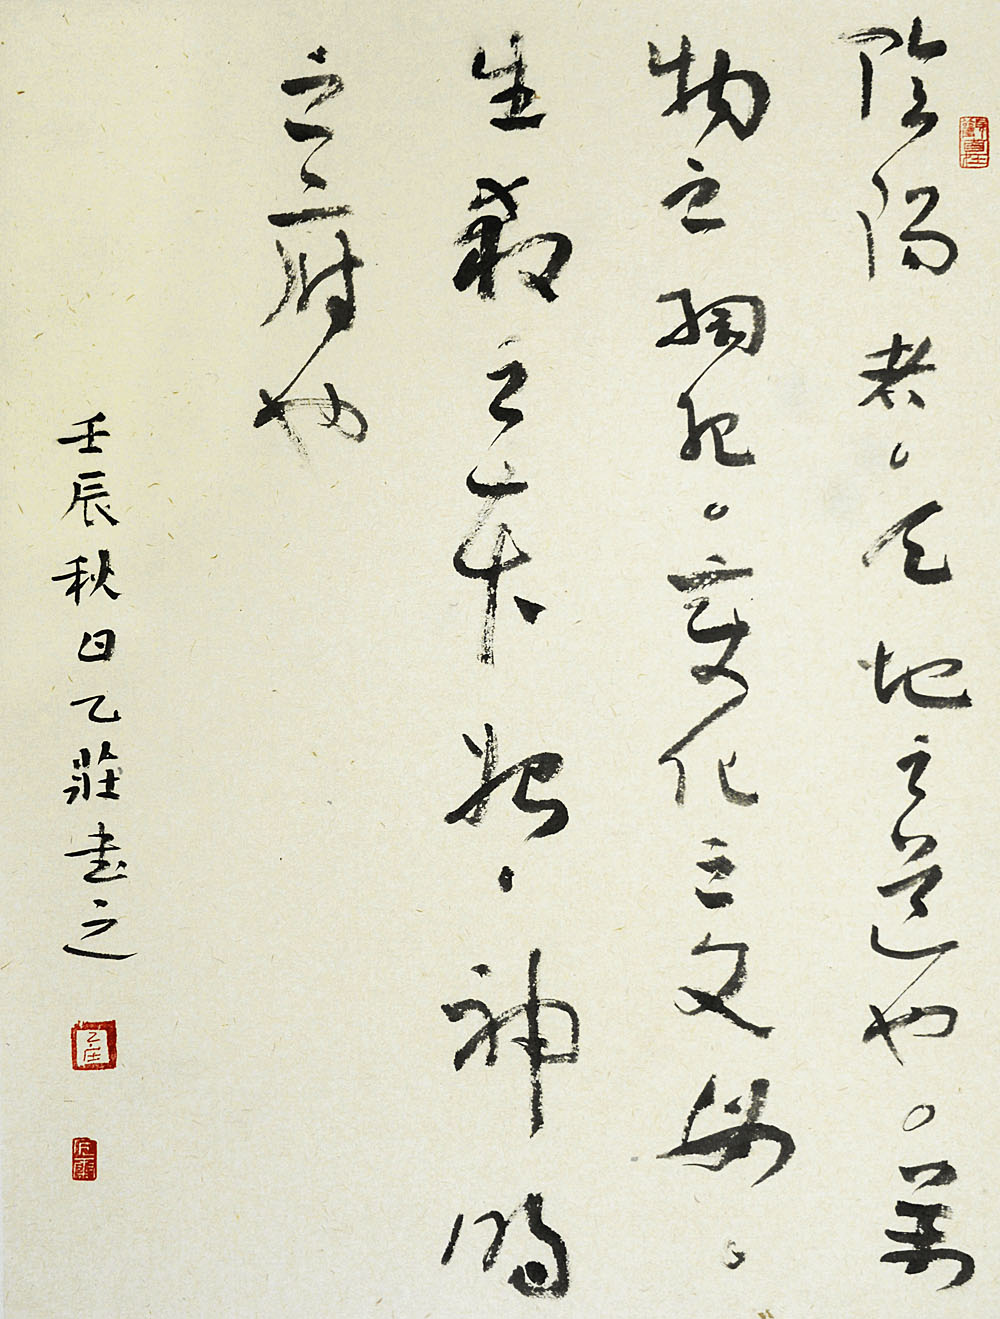 陰陽者。天地之道也。萬
物之綱紀。變化之父母。
生殺之本始、神明
之府也
壬辰秋日乙莊書之
乙庄